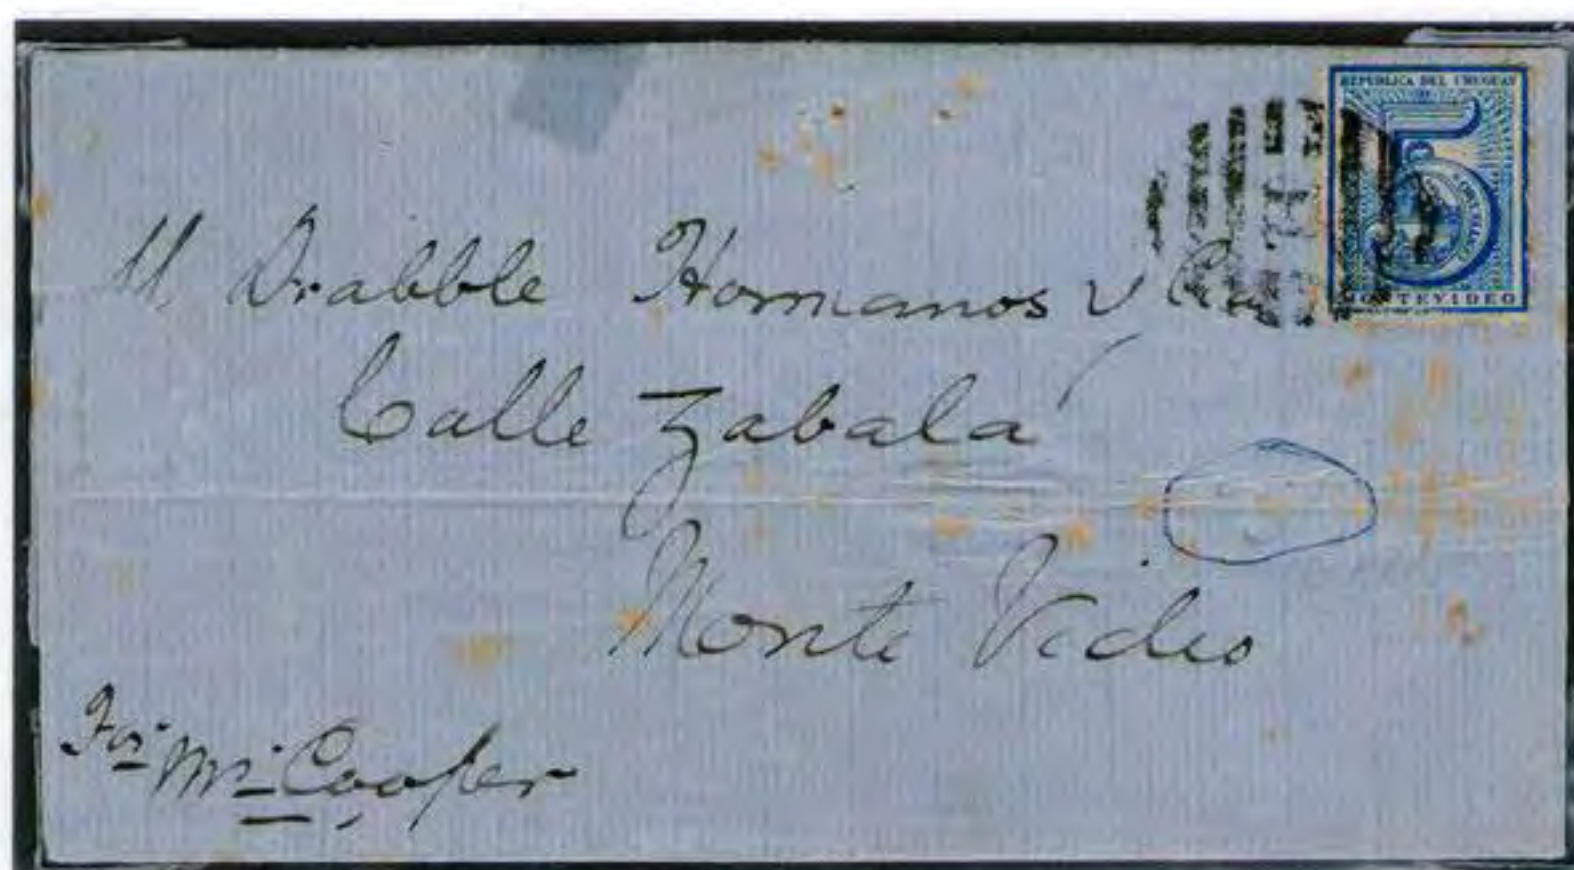 REPUBLICA DEL URUGUAY
MONTEVIDEO
M. Drabble Hermanos y Cia
Calle Zabala
Monte Video
For Mr. Cooper